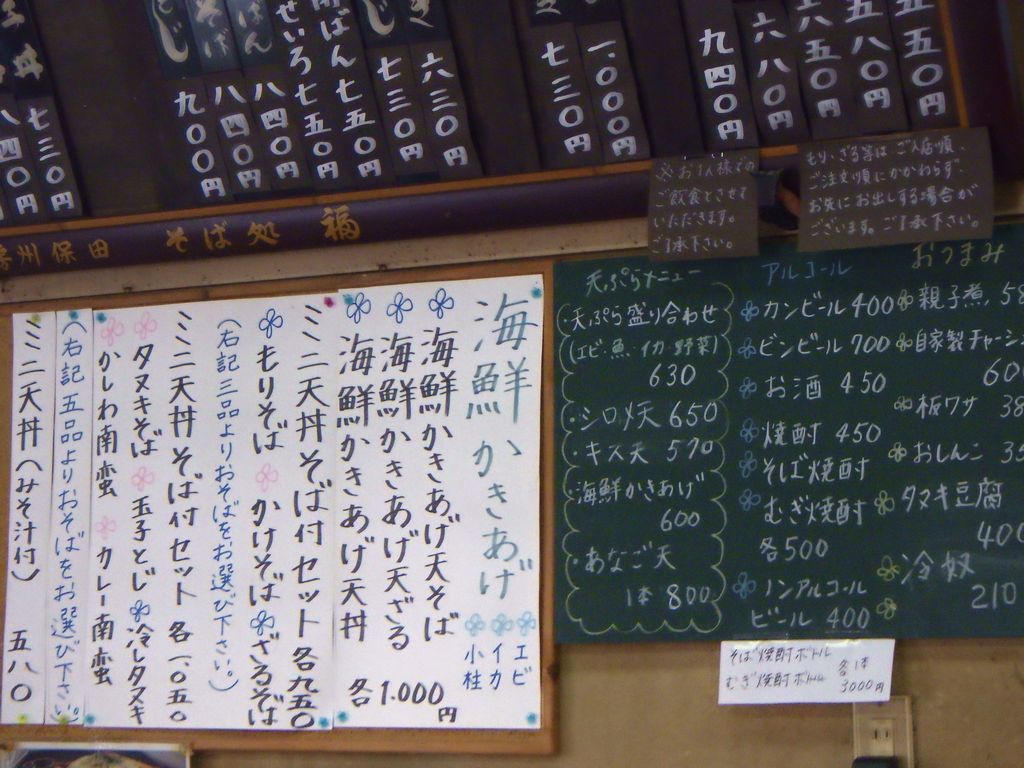 九四〇円
六八〇円
六五〇円
五八〇円
五五〇円
七三〇円
一、〇〇〇円
六三〇円
七三〇円
ばん七五〇円
せいろ七五〇円
八四〇円
八四〇円
九〇〇円
七三〇円
※お1人様での
ご飲食とさせて
いただきます。
ご了承下さい。
もり、ざる等は、ご入店順、
ご注文順にかかわらず、
お先にお出しする場合が
ございます。ご了承下さい。
州保田 そば処 福
海鮮かきあげ
エビ
イカ
小柱
海鮮かきあげ天そば
海鮮かきあげ天ざる
海鮮かきあげ天丼
各1.000円
ミニ天丼そば付セット 各九五〇
もりそば かけそば ざるそば
(右記三品よりおそばをお選び下さい。)
ミニ天丼そば付セット 各一、〇五〇
タヌキそば 玉子とじ 冷しタヌキ
かしわ南蛮 カレー南蛮
(右記五品よりおそばをお選び下さい。)
ミニ天丼(みそ汁付) 五八〇
天ぷらメニュー
・天ぷら盛り合わせ
(エビ・魚・イカ・野菜)
630
・シロメ天 650
・キス天 570
・海鮮かきあげ
600
・あなご天
1本 800
アルコール
カンビール 400
ビンビール 700
お酒 450
焼酎 450
そば焼酎
むぎ焼酎
各500
ノンアルコール
ビール 400
おつまみ
親子煮 58
自家製チャーシ
60
板ワサ 38
おしんこ 35
タマキ豆腐
400
冷奴
210
そば焼酎ボトル
むぎ焼酎ボトル
各1本
3000円